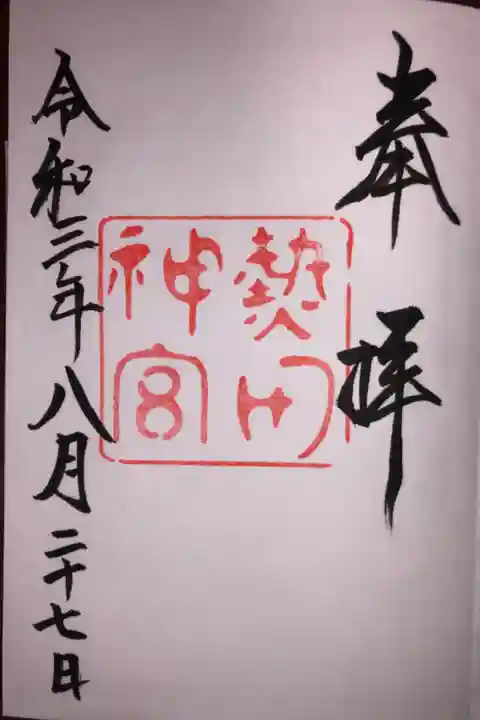 奉拝
熱田
神宮
令和三年八月二十七日